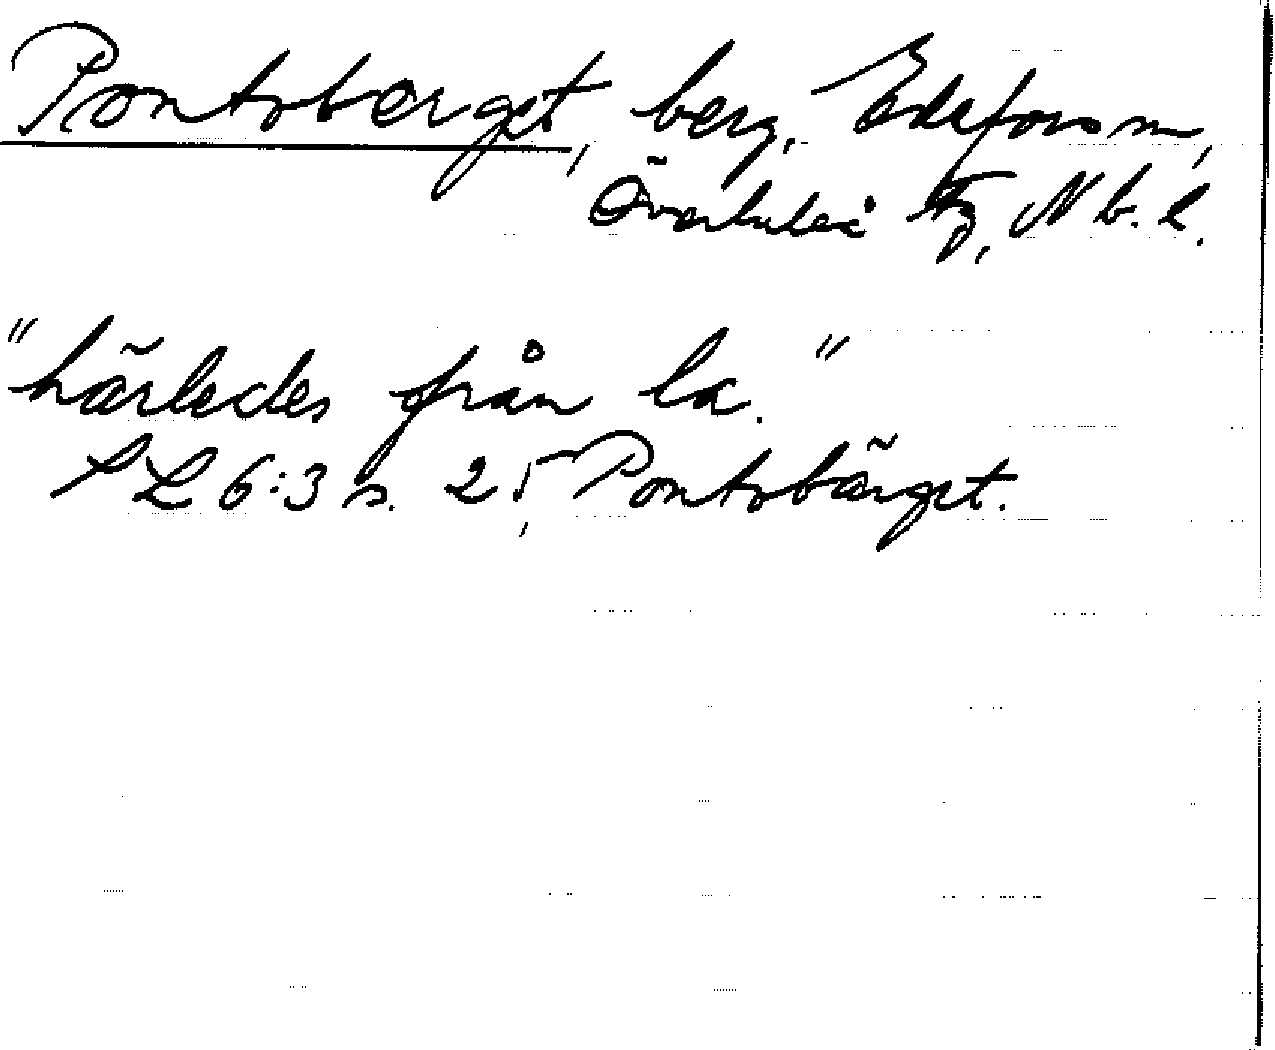 Pontoberget, berg, Edefors sn,
Överluleå tg, Nb. l.
"härledes från la."
SL 6:3 s. 25, Pontobärget.